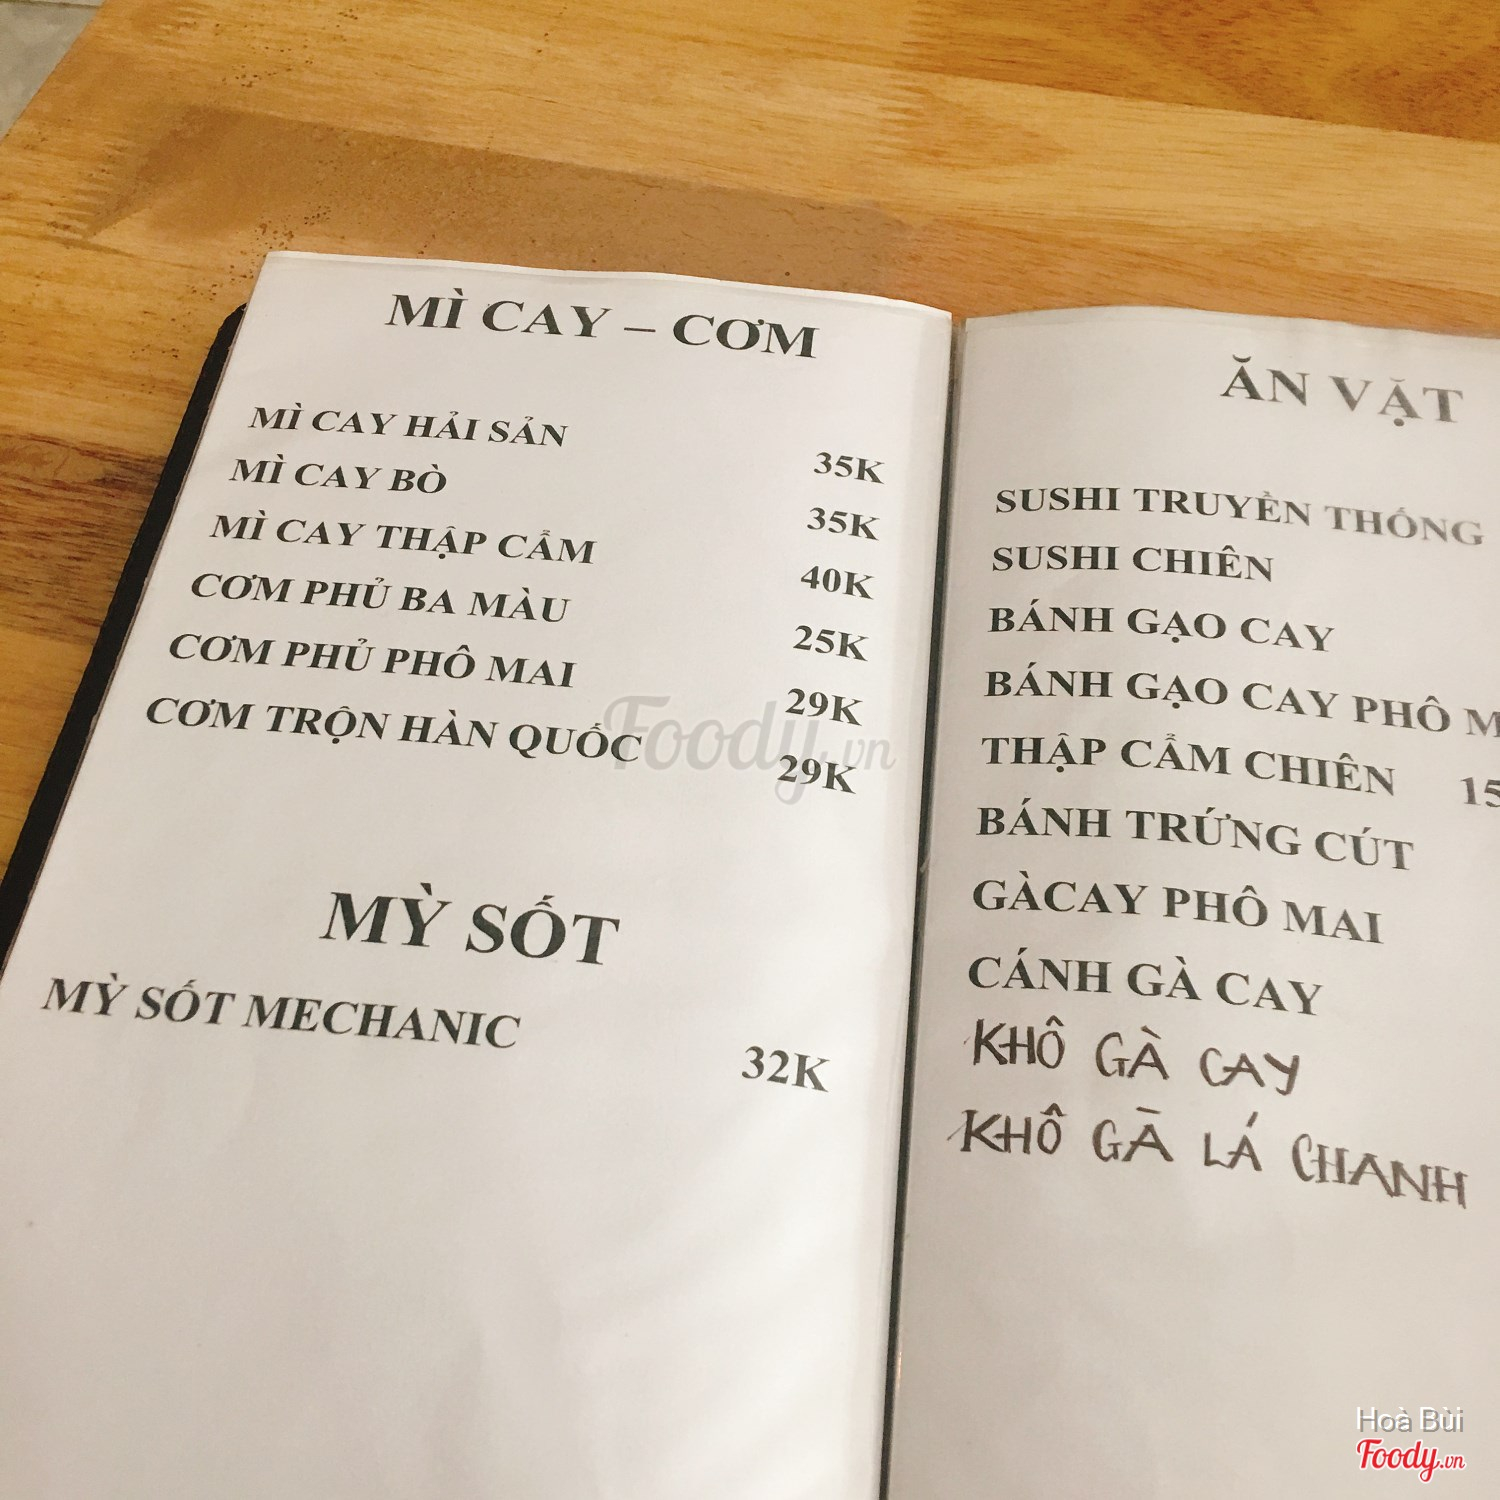 MÌ CAY – CƠM
MÌ CAY HẢI SẢN 35K
MÌ CAY BÒ 35K
MÌ CAY THẬP CẨM 40K
CƠM PHỦ BA MÀU 25K
CƠM PHỦ PHÔ MAI 29K
CƠM TRỘN HÀN QUỐC 29K
MỲ SỐT
MỲ SỐT MECHANIC 32K
ĂN VẶT
SUSHI TRUYỀN THỐNG
SUSHI CHIÊN
BÁNH GẠO CAY
BÁNH GẠO CAY PHÔ M
THẬP CẨM CHIÊN 15
BÁNH TRỨNG CÚT
GÀCAY PHÔ MAI
CÁNH GÀ CAY
KHÔ GÀ CAY
KHÔ GÀ LÁ CHANH
Foody.vn
Hoà Bùi
Foody.vn